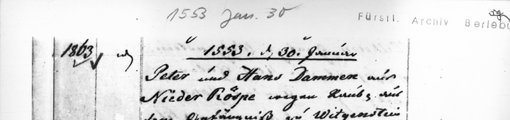 1553 Jan. 30
Fürstl. Archiv Berlebu
1863
1553. d. 30. Januar
Peter und Hans Dammen aus
Nieder Röspe wegen Raubs aus
dem Gefängniß zu Witgenstein